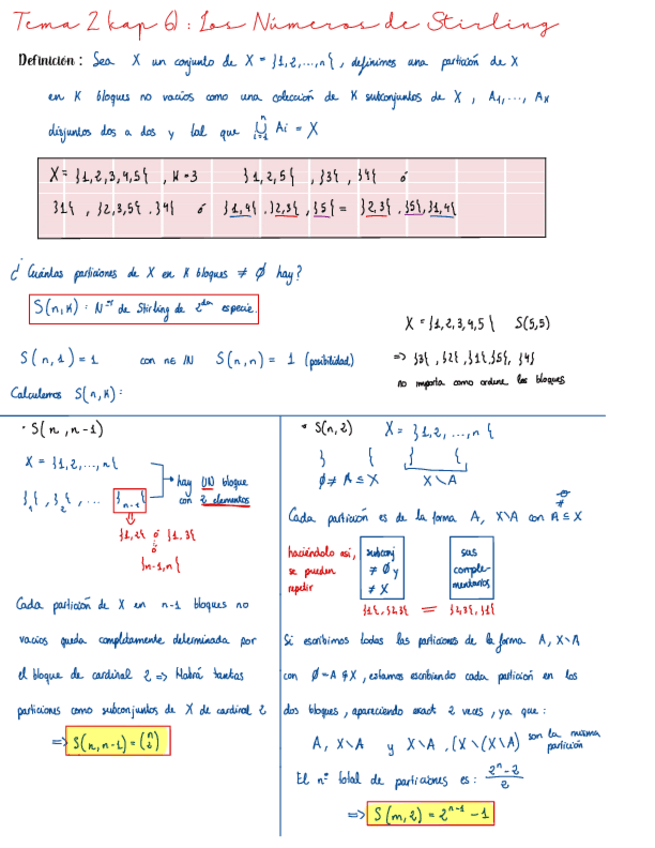 Tema 2 (cap 6): Los Números de Stirling
Definición: Sea X un conjunto de X = }1,2,...,n{ , definimos una partición de X
en K bloques no vacíos como una colección de K subconjuntos de X , A₁,..., Aₖ
disjuntos dos a dos y tal que ⋃ᵢ₌₁ⁿ Ai = X
X = }1,2,3,4,5{ , K=3 }1,2,5{ , }3{ , }4{ ó
}1{ , }2,3,5{ . }4{ ó }1,4{ . }2,3{ , }5{ = }2,3{ . }5{, }1,4{
¿ Cuántas particiones de X en K bloques ≠ ∅ hay?
S(n,K) : Nº de Stirling de 2da especie.
X = }1,2,3,4,5{ S(5,5)
S(n,1) = 1 con n∈ ℕ S(n,n) = 1 (posibilidad)
=> }3{ , }2{ , }1{, }5{, }4{
no importa como ordene los bloques
Calculemos S(n,K) :
· S(n,n-1)
X = }1,2,...,n{
}₁{ , }₂{ , ... }ₙ₋₁{
hay UN bloque
con 2 elementos
}1,2{ ó }1,3{
ó
}n-1,n{
Cada partición de X en n-1 bloques no
vacíos queda completamente determinada por
el bloque de cardinal 2 => Habrá tantas
particiones como subconjuntos de X de cardinal 2
=> S(n,n-1) = (n 2)
· S(n,2) X = }1,2,...,n{
} { } {
∅ ≠ A ⊆ X X\A
Cada partición es de la forma A, X\A con A ⊆ X
≠
haciéndolo así,
se pueden
repetir
subconj
≠ ∅ y
≠ X
sus
comple-
mentarios
}1{, }2,3{ = }2,3{, }1{
Si escribimos todas las particiones de la forma A, X\A
con ∅ ≠ A ⊊ X , estamos escribiendo cada partición en los
dos bloques, apareciendo exact 2 veces, ya que :
A, X\A y X\A , (X\(X\A) son la misma
partición
El nº total de particiones es : 2ⁿ-2 / 2
=> S(m,2) = 2ⁿ⁻¹ - 1